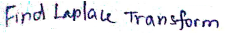 Find Laplace Transform